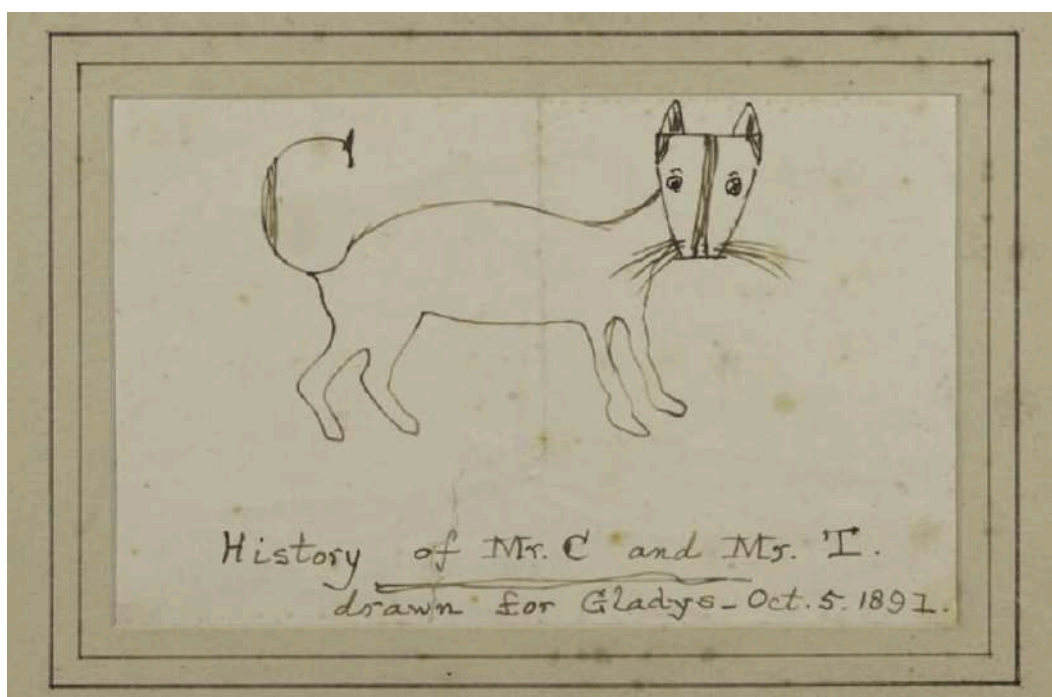 History of Mr. C and Mr. T.
drawn for Gladys - Oct. 5. 1891.